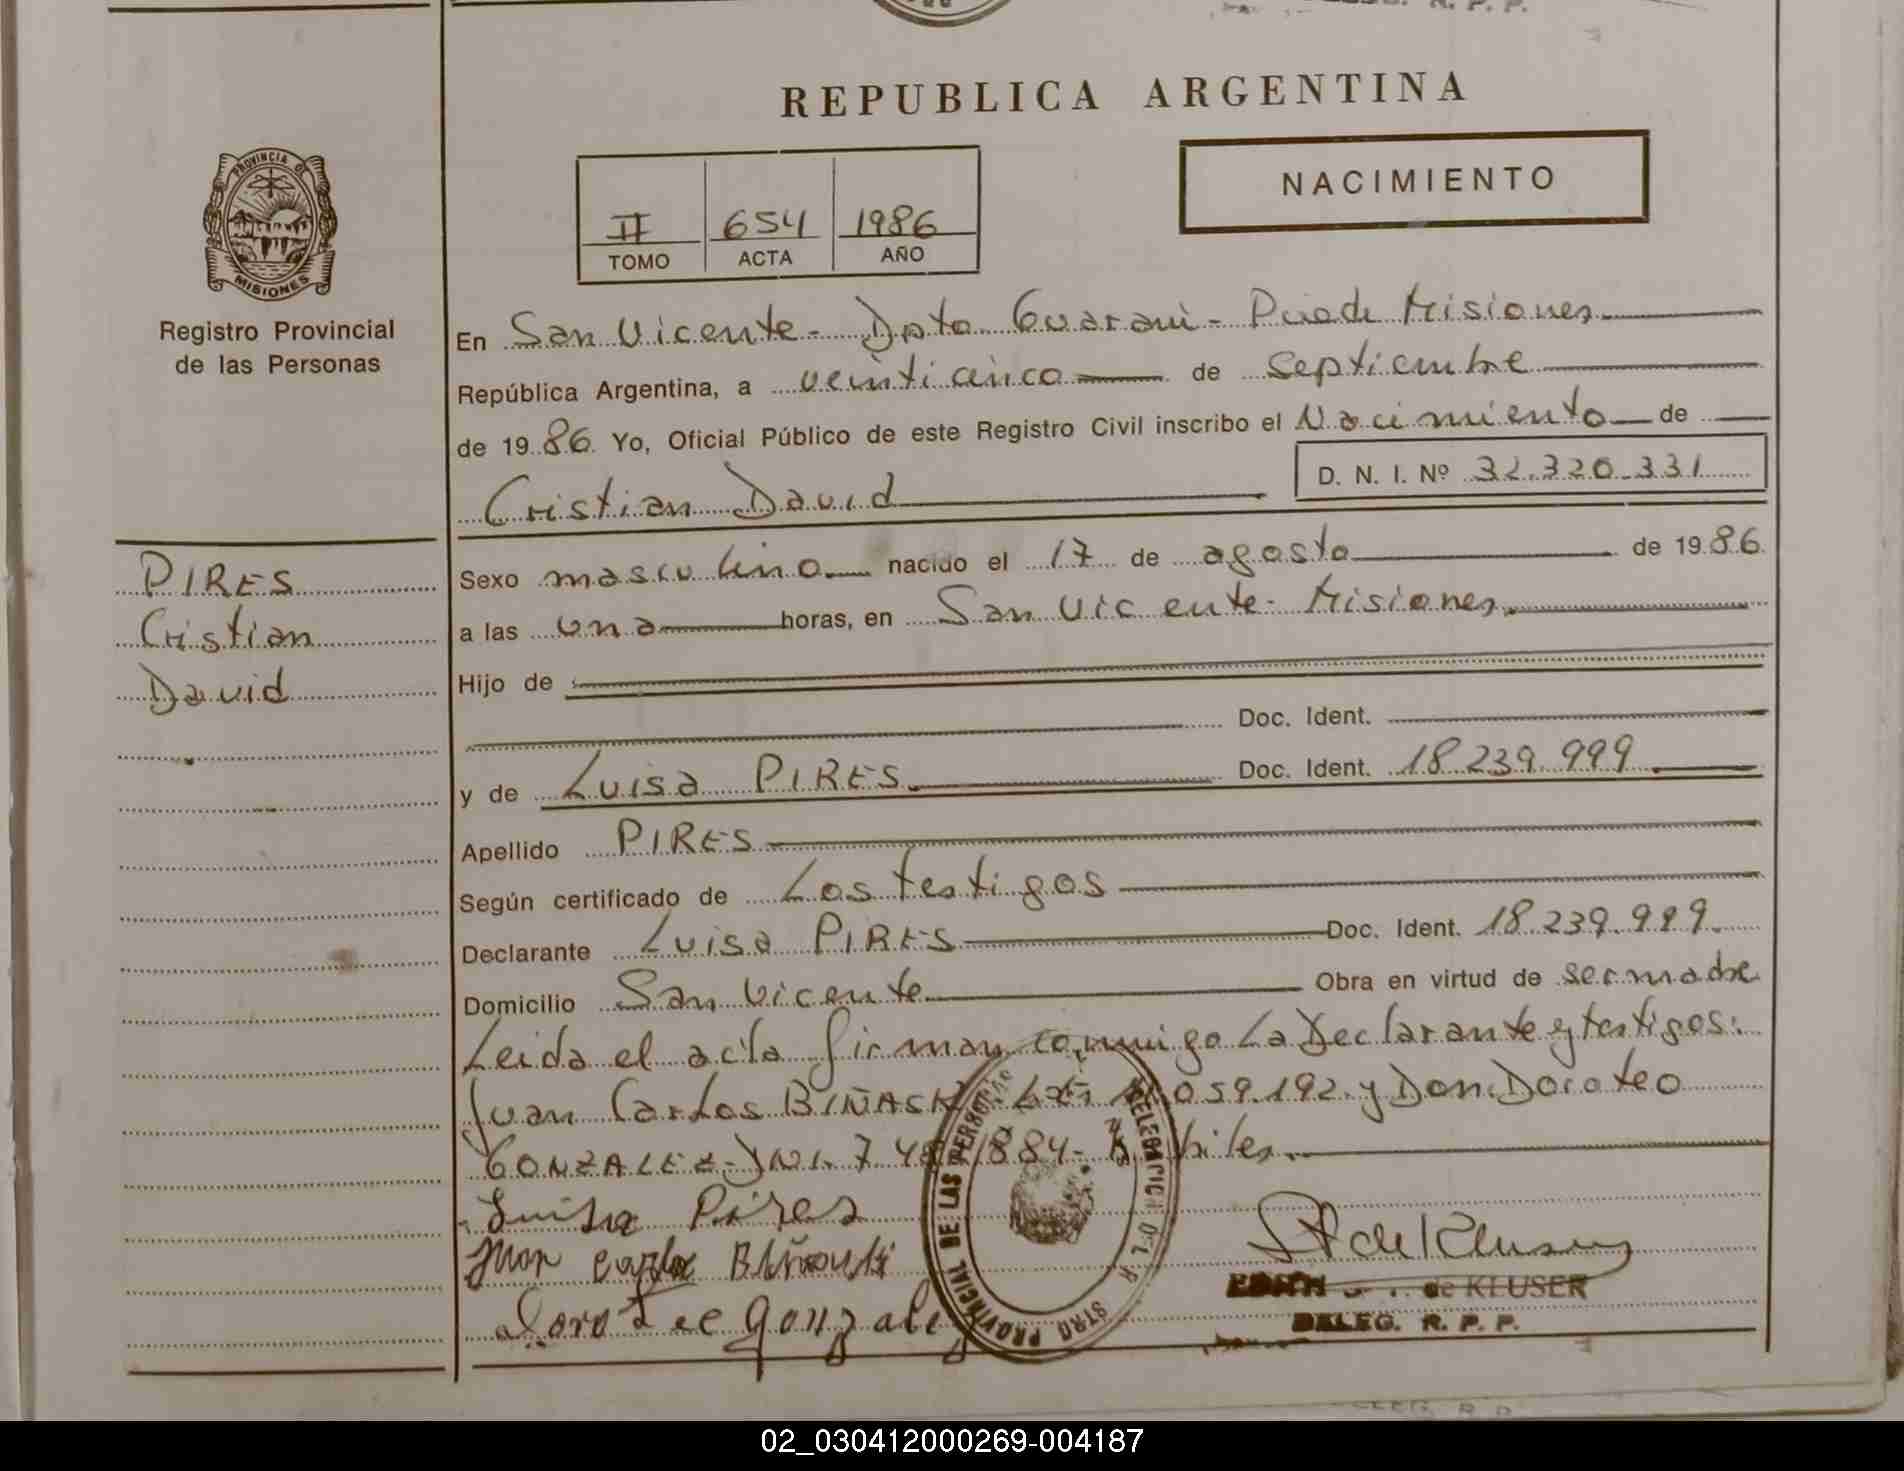 DELEG. R. P. P.
REPUBLICA ARGENTINA
PROVINCIA D
MISIONES
Registro Provincial
de las Personas
NACIMIENTO
II 654 1986
TOMO ACTA AÑO
En San Vicente - Dpto Guarani - Pciade Misiones
República Argentina, a veinticinco de septiembre
de 1986 Yo, Oficial Público de este Registro Civil inscribo el Nacimiento de
Cristian David D. N. I. Nº 32.320.331
PIRES
Cristian
David
Sexo masculino nacido el 17 de agosto de 1986
a las una horas, en San Vicente - Misiones
Hijo de
Doc. Ident.
y de Luisa PIRES Doc. Ident. 18.239.999
Apellido PIRES
Según certificado de Los testigos
Declarante Luisa PIRES Doc. Ident. 18.239.999
Domicilio San Vicente Obra en virtud de ser madre
Leida el acta firman conmigo La Declarante y testigos:
Juan Carlos 059.192 y Don Doroteo
GONZALEZ - DNI. 7 884 -
Luisa Pires
Juan Carlos
Doroteo Gonzalez
de KLUSER
DELEG. R. P. P.
PROVINCIAL DE LAS PERSONAS
DELEGACION
02_030412000269-004187